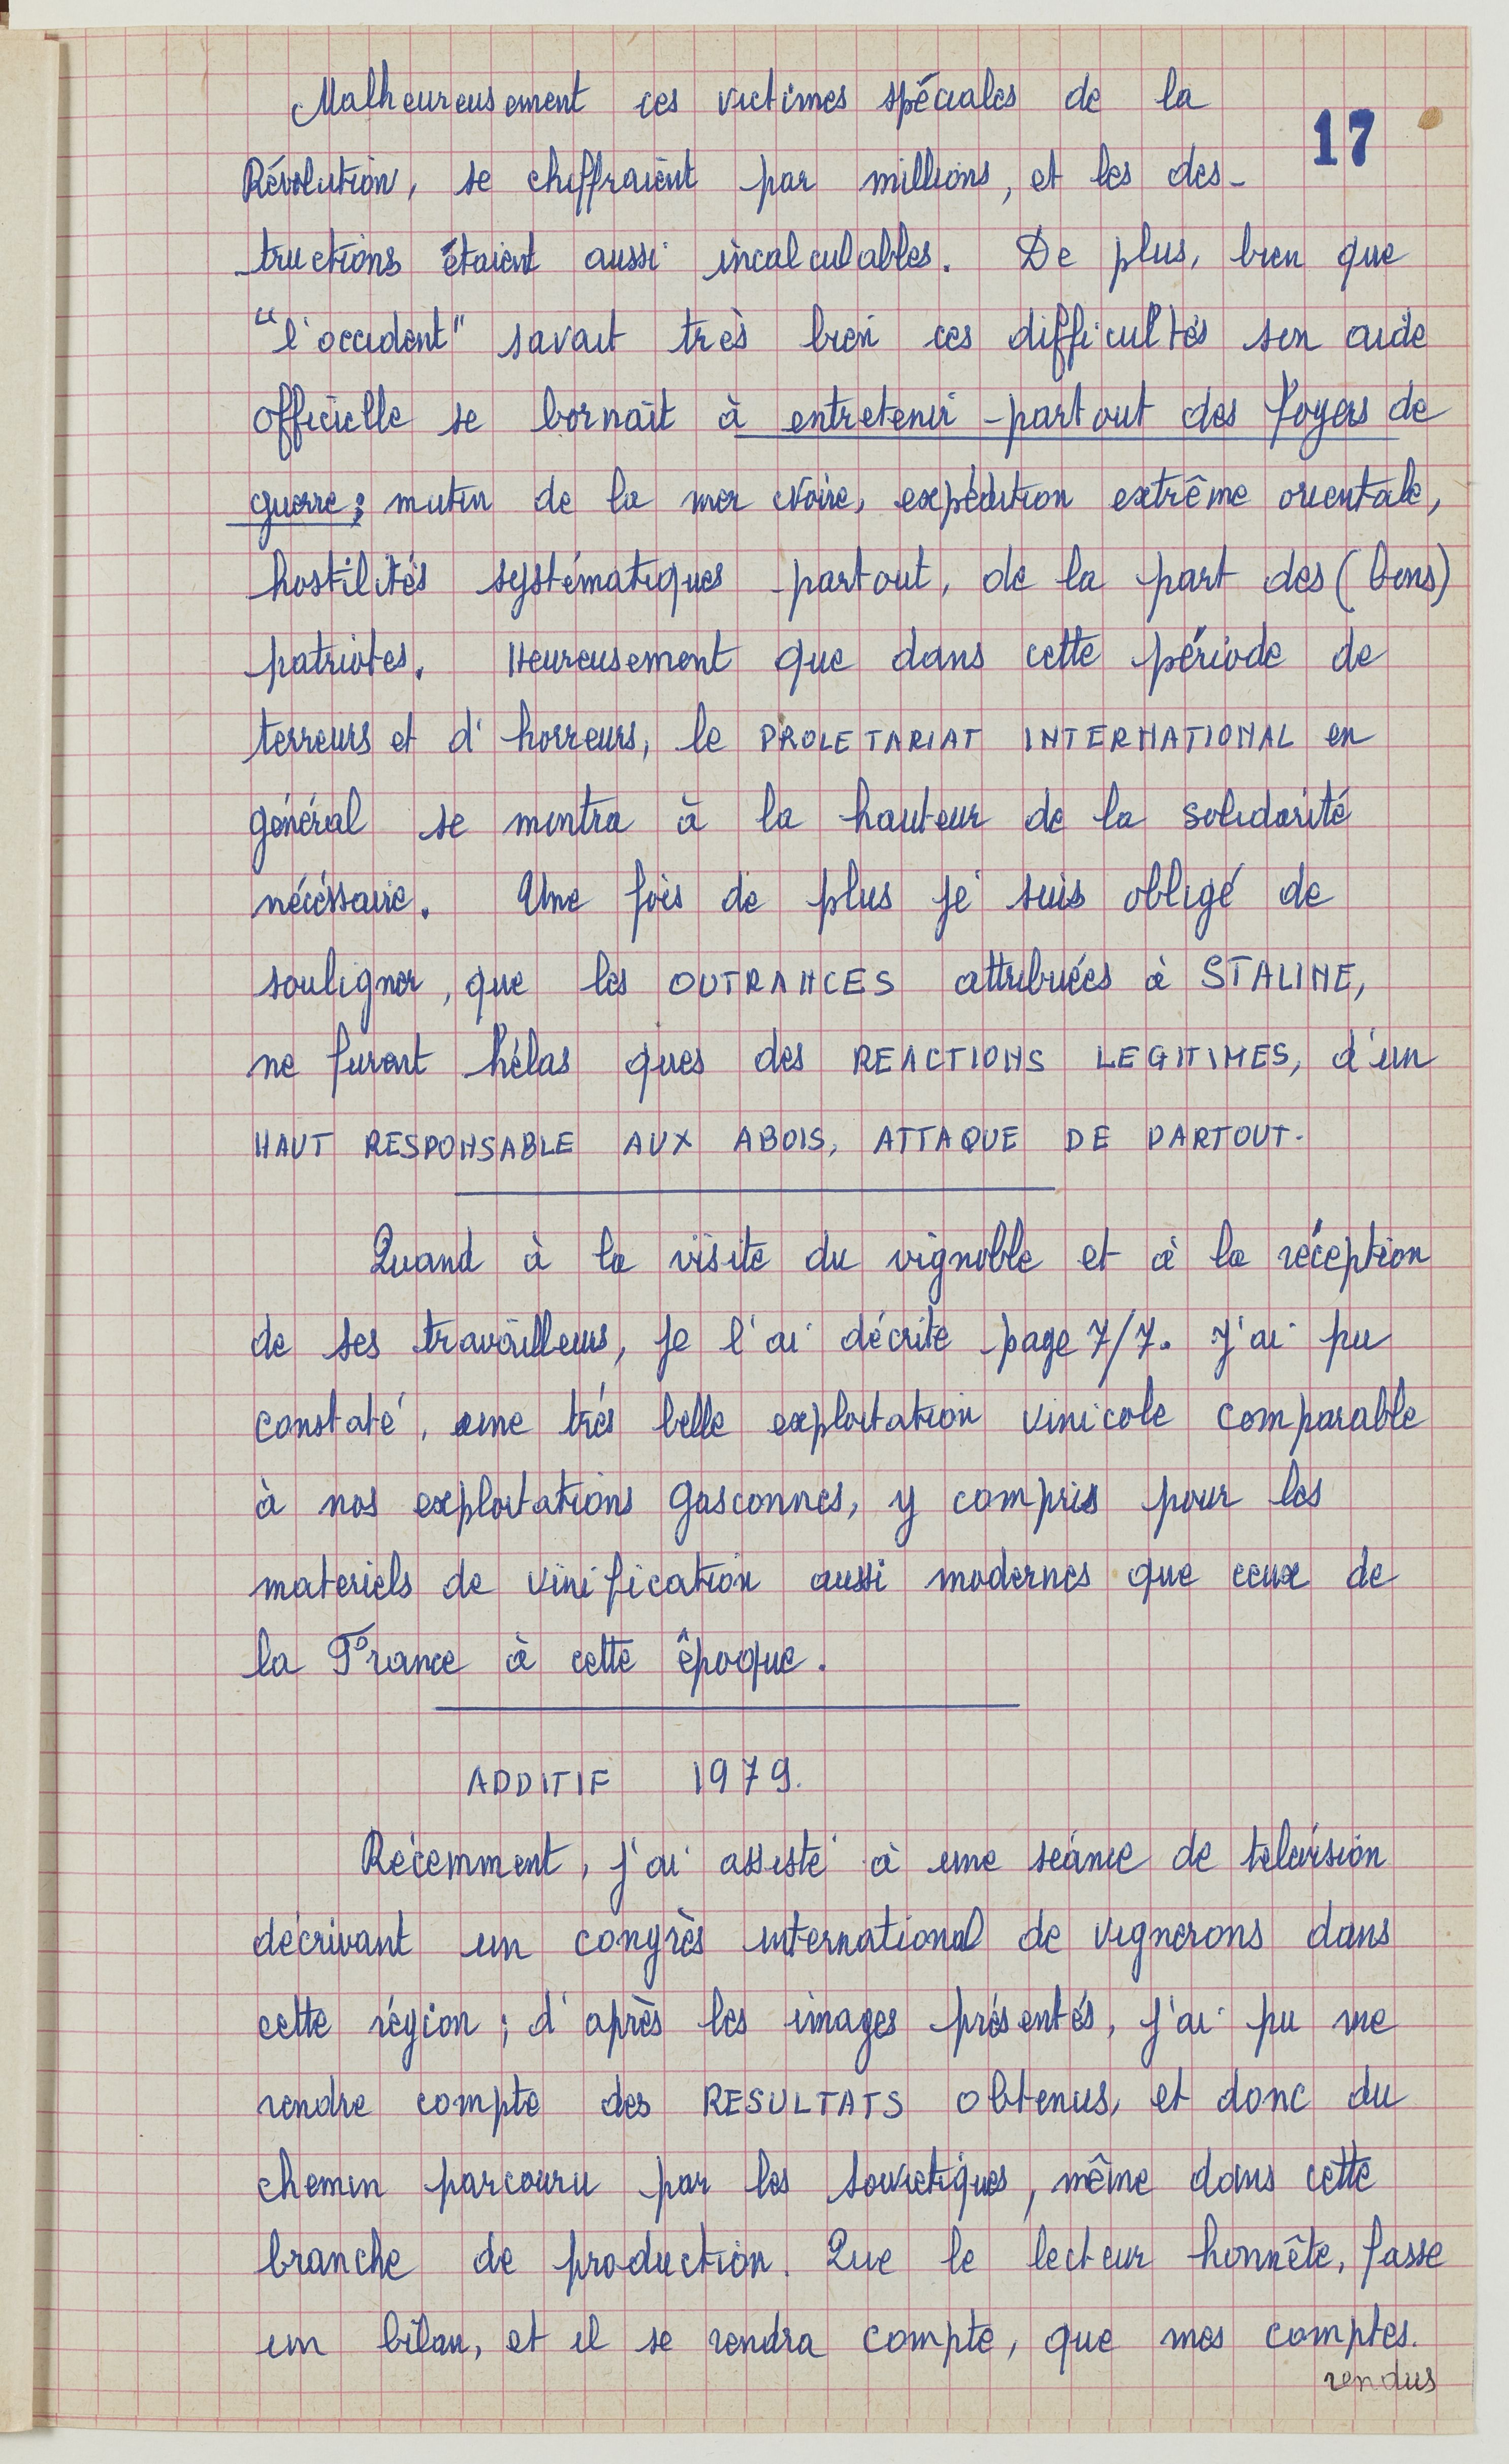 Malheureusement ces victimes spéciales de la
17
Révolution, se chiffraient par millions, et les des-
tructions étaient aussi incalculables. De plus, bien que
"l'occident" savait très bien ces difficultés son aide
officielle se bornait à entretenir partout des foyers de
guerre; mutin de la mer Noire, expédition extrême orientale,
hostilités systématiques partout, de la part des (bons)
patriotes. Heureusement que dans cette période de
terreurs et d'horreurs, le PROLETARIAT INTERNATIONAL en
général se montra à la hauteur de la solidarité
nécéssaire. Une fois de plus je suis obligé de
souligner, que les OUTRANCES attribuées à STALINE,
ne furent hélas ques des REACTIONS LEGITIMES, d'un
HAUT RESPONSABLE AUX ABOIS, ATTAQUE DE PARTOUT.
Quand à la visite du vignoble et à la réception
de ses travailleurs, je l'ai décrite page 7/7. J'ai pu
constaté, une trés belle exploitation vinicole comparable
à nos exploitations gasconnes, y compris pour les
materiels de vinification aussi modernes que ceux de
la France à cette êpoque.
ADDITIF 1979.
Récemment, j'ai assisté à une séance de television
décrivant un congrès international de vignerons dans
cette région; d'après les images présentés, j'ai pu me
rendre compte des RESULTATS obtenus, et donc du
chemin parcouru par les sovietiques, même dans cette
branche de production. Que le lecteur honnête, fasse
un bilan, et il se rendra compte, que mes comptes.
rendus